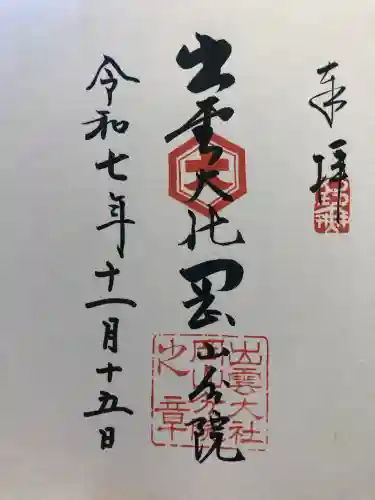 奉拝
出雲大社岡山分院
大
出雲大社
岡山分院
之章
令和七年十一月十五日